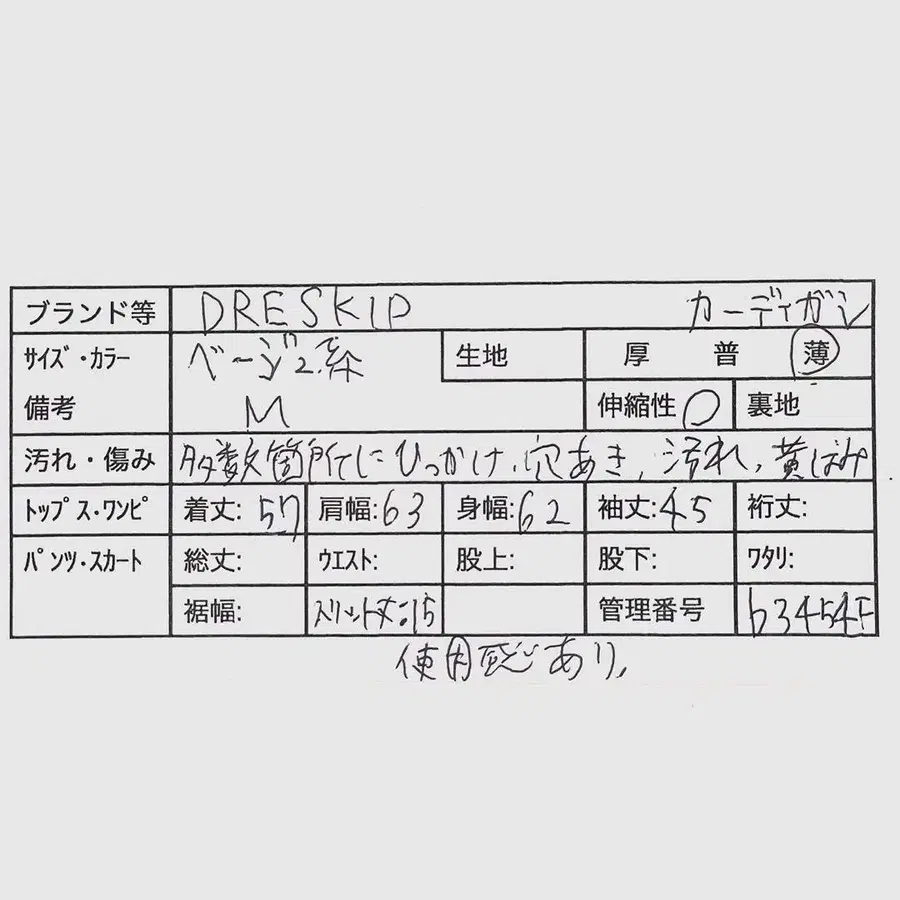 ブランド等 DRESKIP カーディガン
サイズ・カラー ベージュ系 生地 厚 普 薄
備考 M 伸縮性 ○ 裏地
汚れ・傷み 多数箇所にひっかけ、穴あき、汚れ、黄ばみ.
トップス・ワンピ 着丈: 57 肩幅: 63 身幅: 62 袖丈: 45 裄丈:
パンツ・スカート 総丈: ウエスト: 股上: 股下: ワタリ:
裾幅: スリット丈:15 管理番号 b3454F
使用感あり、